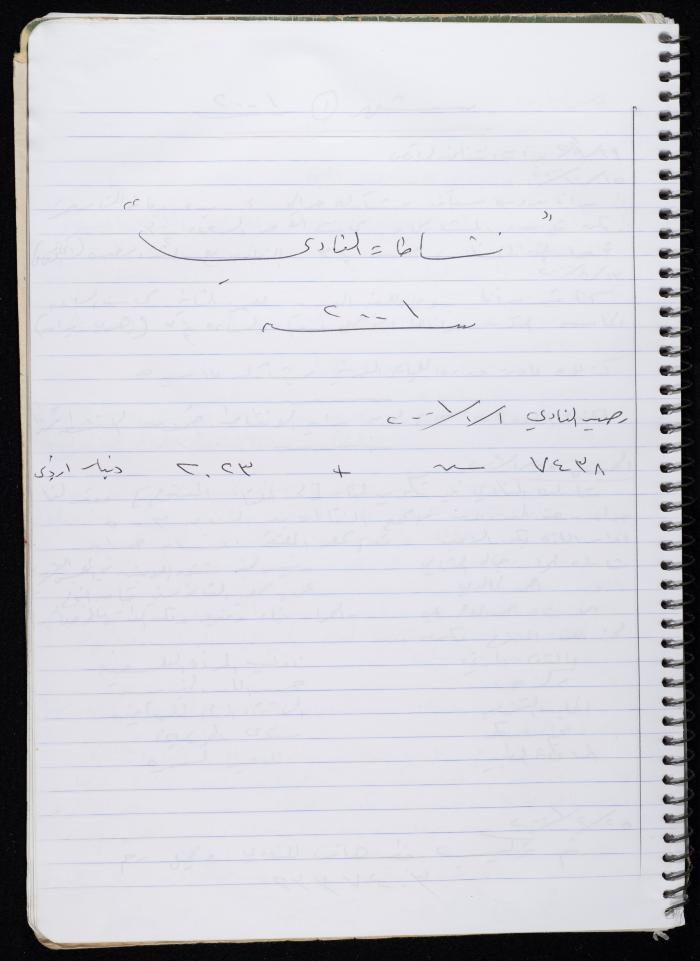 " نشاطات النادي "
٢٠٠١
رصيد النادي ١/١/٢٠٠١
٧٤٣٨ + ٢٠٢٣ دينار اردني